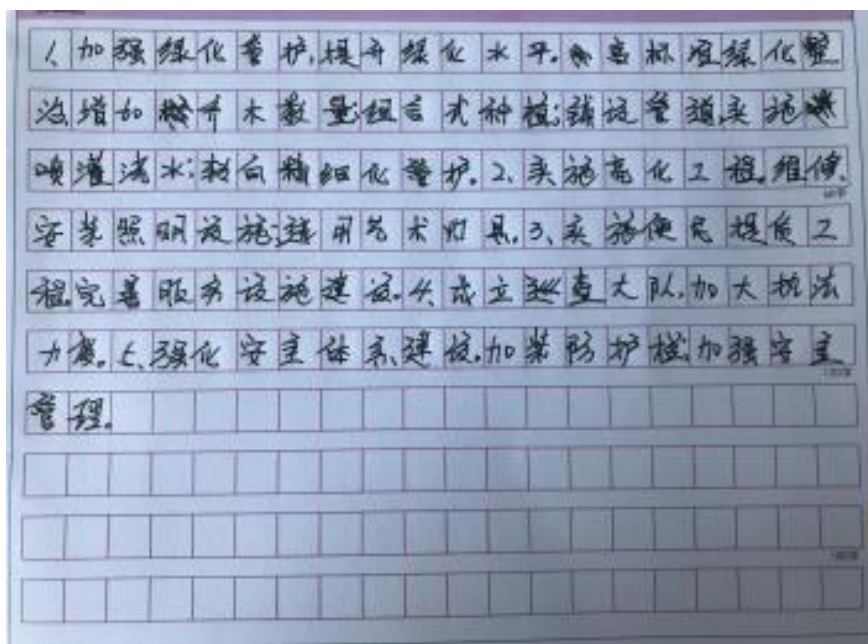 1、加强绿化管护,提升绿化水平。高标准绿化整
治,增加乔木数量;组合式种植;铺设管道,实施
喷灌浇水;转向精细化管护。2、实施亮化工程。维修、
安装照明设施;选用艺术灯具。3、实施便民提质工
程。完善服务设施建设。4、成立巡查大队,加大执法
力度。5、强化安全体系建设。加装防护栏,加强安全
管理。